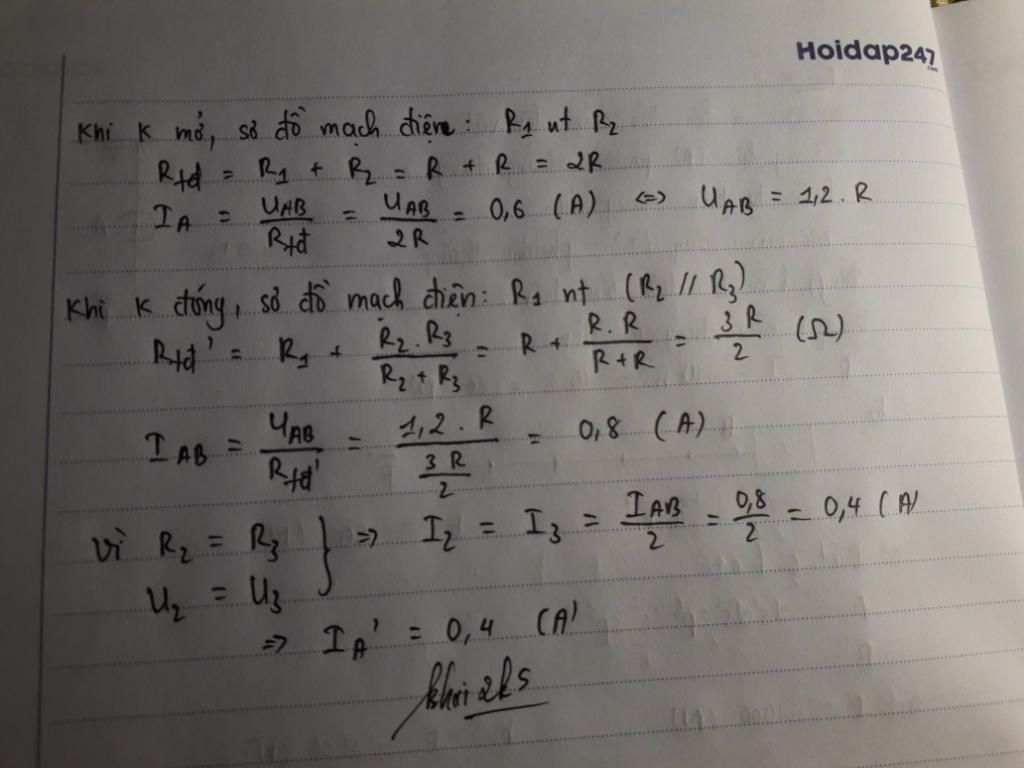 Hoidap247
.com
Khi K mở, sơ đồ mạch điện: R1 nt R2
Rtđ = R1 + R2 = R + R = 2R
IA = UAB/Rtđ = UAB/2R = 0,6 (A) <=> UAB = 1,2 . R
Khi K đóng, sơ đồ mạch điện: R1 nt (R2 // R3)
Rtđ' = R1 + R2 . R3/R2 + R3 = R + R . R/R + R = 3R/2 (Ω)
IAB = UAB/Rtđ' = 1,2 . R/(3R/2) = 0,8 (A)
Vì R2 = R3 } => I2 = I3 = IAB/2 = 0,8/2 = 0,4 (A)
U2 = U3
=> IA' = 0,4 (A)
khoi2k5